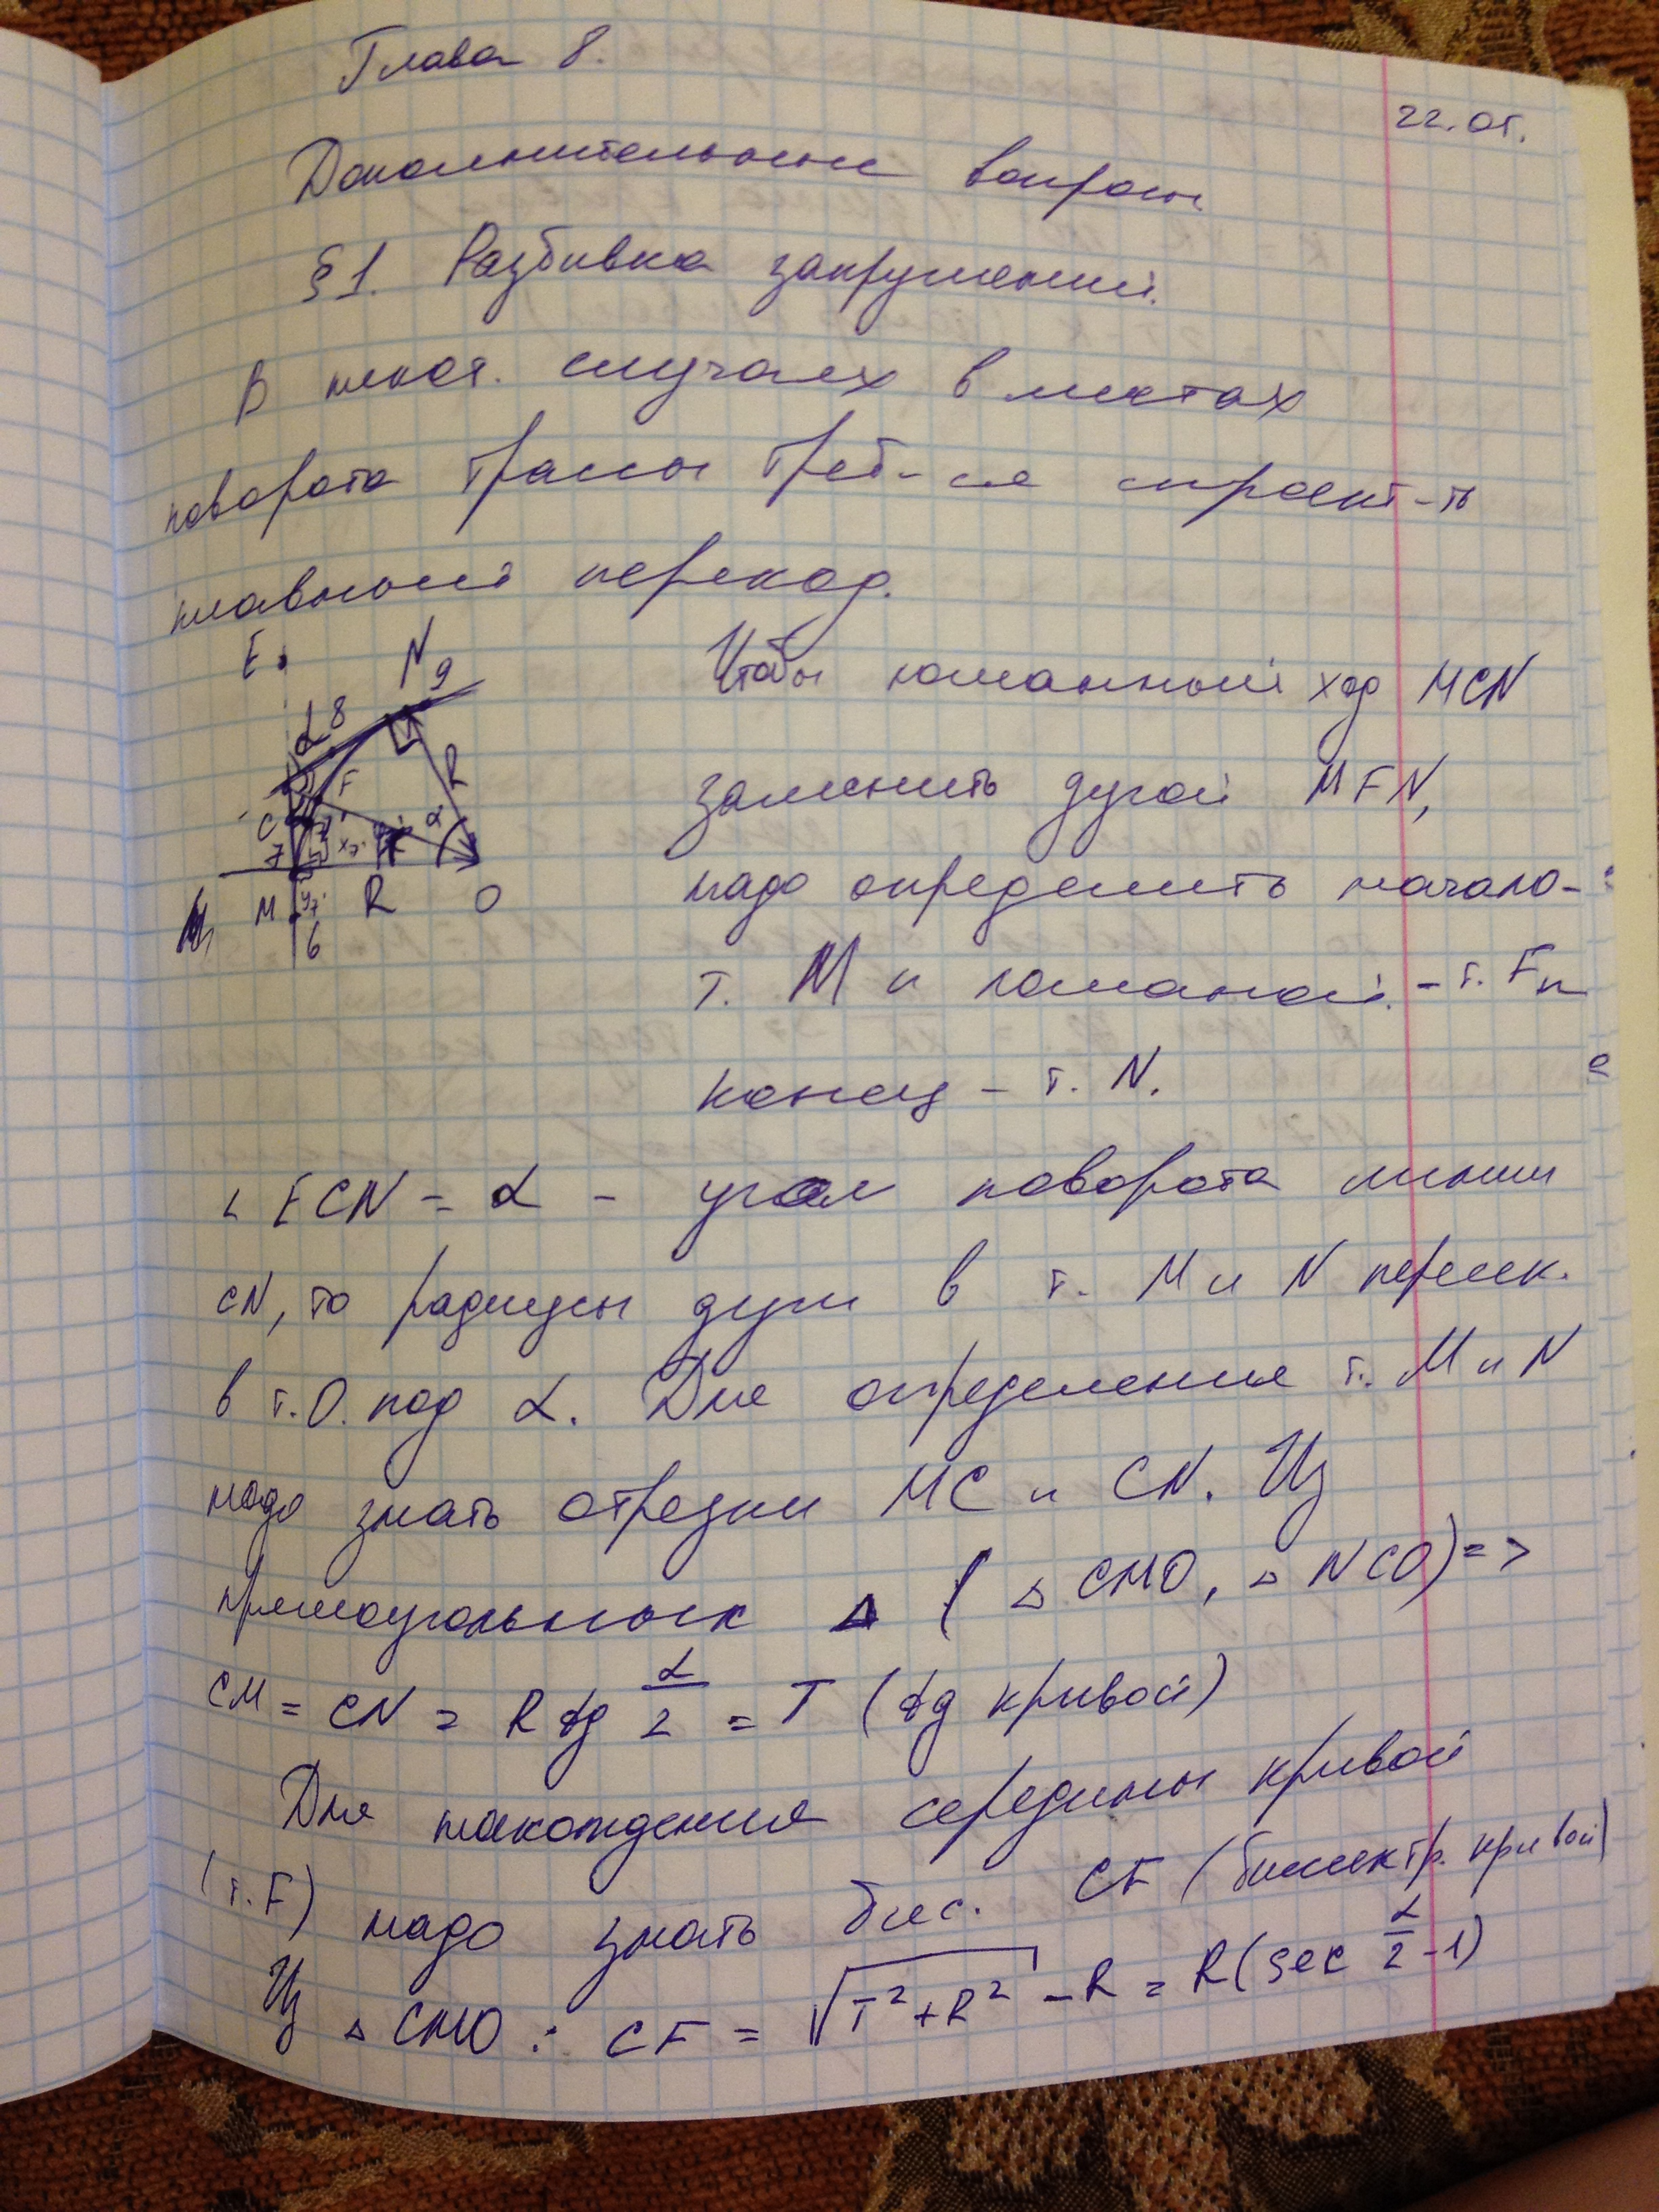 Глава 8.
22.05.
Дополнительные вопросы
§1. Разбивка закруглений.
В некот. случаях в местах
поворота трассы треб-ся спроект-ть
плавный переход.
E N 9
α 8
F R
C α
7 x₇'
M y₇' R O
6
Чтобы ломанный ход MCN
заменить дугой MFN,
надо определить начало-
т. M и ломаной - т. F и
конец - т. N.
∠ ECN - α - угол поворота линии
CN, то радиусы дуги в т. M и N перес.
в т. O. под α. Для определения т. M и N
надо знать отрезки MC и CN. Из
прямоугольных Δ (Δ CMO, Δ NCO) =>
CM = CN = R tg α/2 = T (tg кривой)
Для нахождения середины кривой
(т. F) надо знать бис. CF (биссектр. кривой)
Из Δ CMO : CF = √T²+R² - R = R(sec α/2 -1)